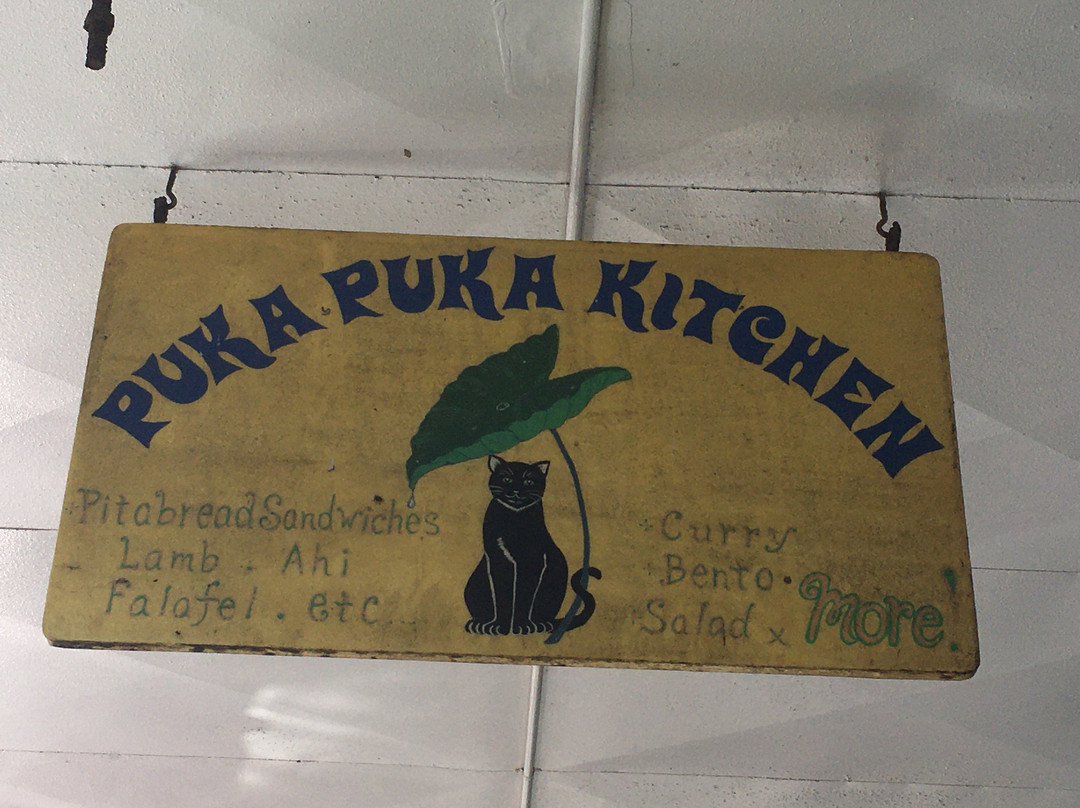 PUKA PUKA KITCHEN
Pitabread Sandwiches
Lamb . Ahi
Falafel . etc
Curry
Bento .
Salad x More!